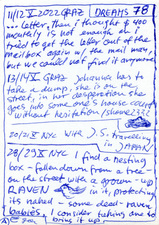 11/12 V 2022 GRAZ DREAMS 78
letter, then i thought $ 400
monthly is not enough so i
tried to get the letter out of the
mailbox again w/ the mail man,
but we could not find it anymore.
13/14 V GRAZ Johanna has to
take a dump, she is on the
street, in her desperation she
goes into some one's house court
without hesitation/shame
20/21 X NYC With J.S. travelling
in JAPAN
28/29 X NYC I find a nesting
box - fallen down from a tree -
on the street with a grown-up
RAVEN in it, protecting
its naked - some dead - raven
babies. I consider taking one to
bring it up